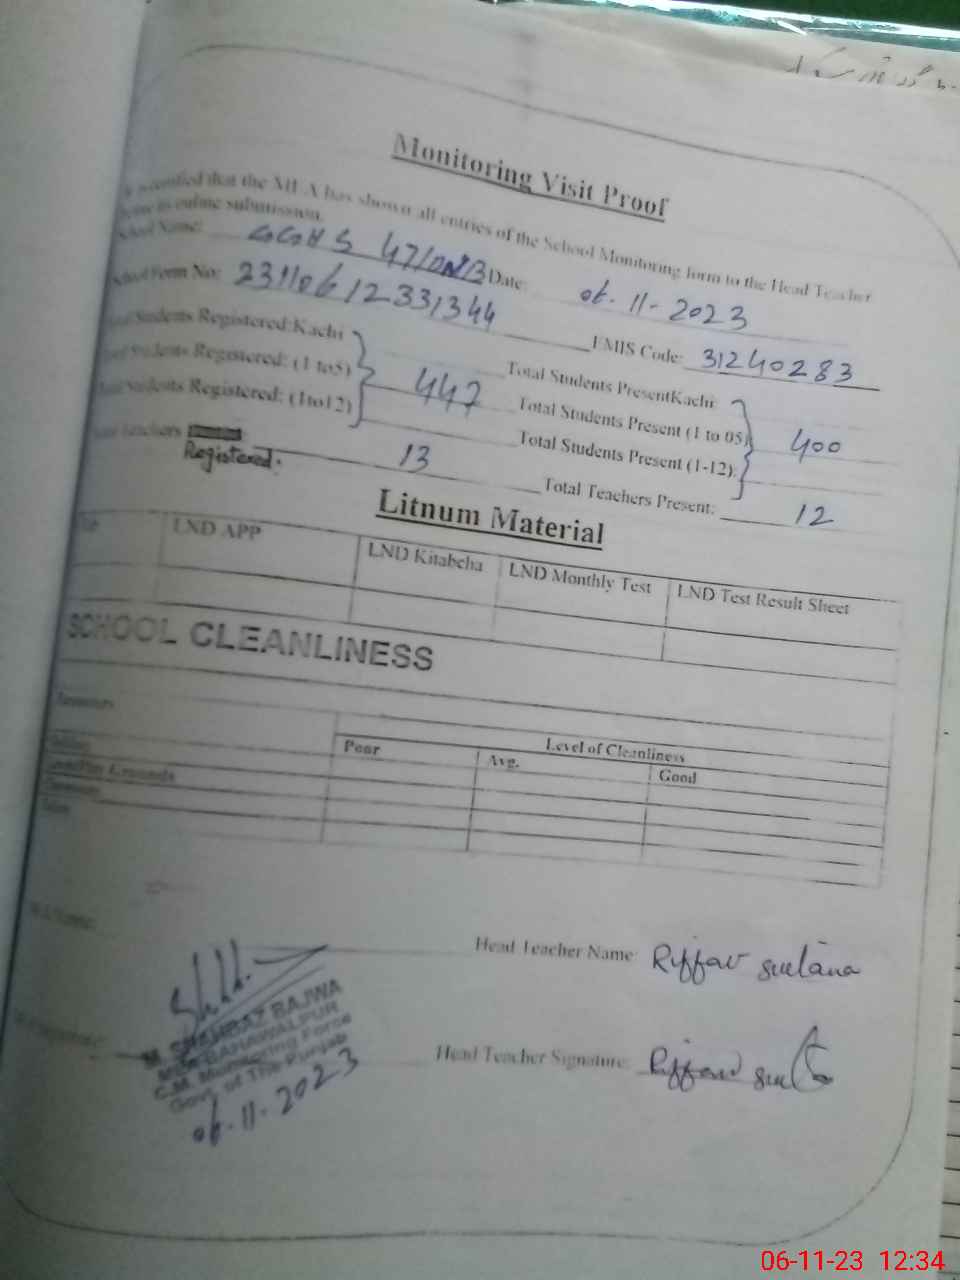 Monitoring Visit Proof
certified that the MEA has shown all entries of the School Monitoring form to the Head Teacher
online submission.
School Name: GGHS 47/DNB Date: 06-11-2023
School Form No: 231106 12331344 EMIS Code: 31240283
Students Registered:Kachi Total Students PresentKachi
Students Registered: (1 to5) 447 Total Students Present (1 to 05) 400
Students Registered: (1to12) Total Students Present (1-12):
Teachers Registered: 13 Total Teachers Present: 12
Litnum Material
LND APP LND Kitabcha LND Monthly Test LND Test Result Sheet
SCHOOL CLEANLINESS
Level of Cleanliness
Poor Avg. Good
Grounds
Head Teacher Name: Riffat Sultana
M. SHAHBAZ BAJWA
MEA BAHAWALPUR
C.M. Monitoring Force
Govt. of The Punjab
Head Teacher Signature: Riffat
06-11-2023
06-11-23 12:34